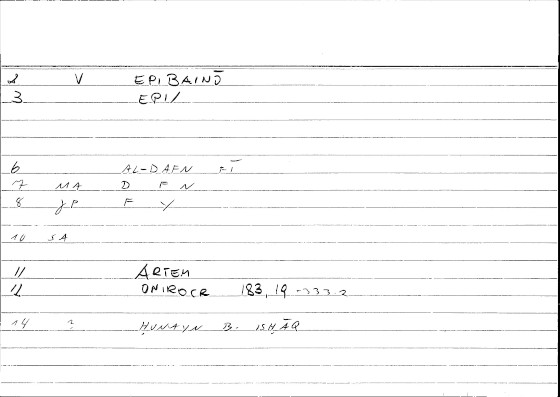 2 V EPIBAINŌ
3 EPI/
6 AL-DAFN FĪ
7 MA D F N
8 F Y
10 SA
11 ARTEM
12 ONIROCR 183, 19
14 ? ḤUNAYN B. ISḤĀQ